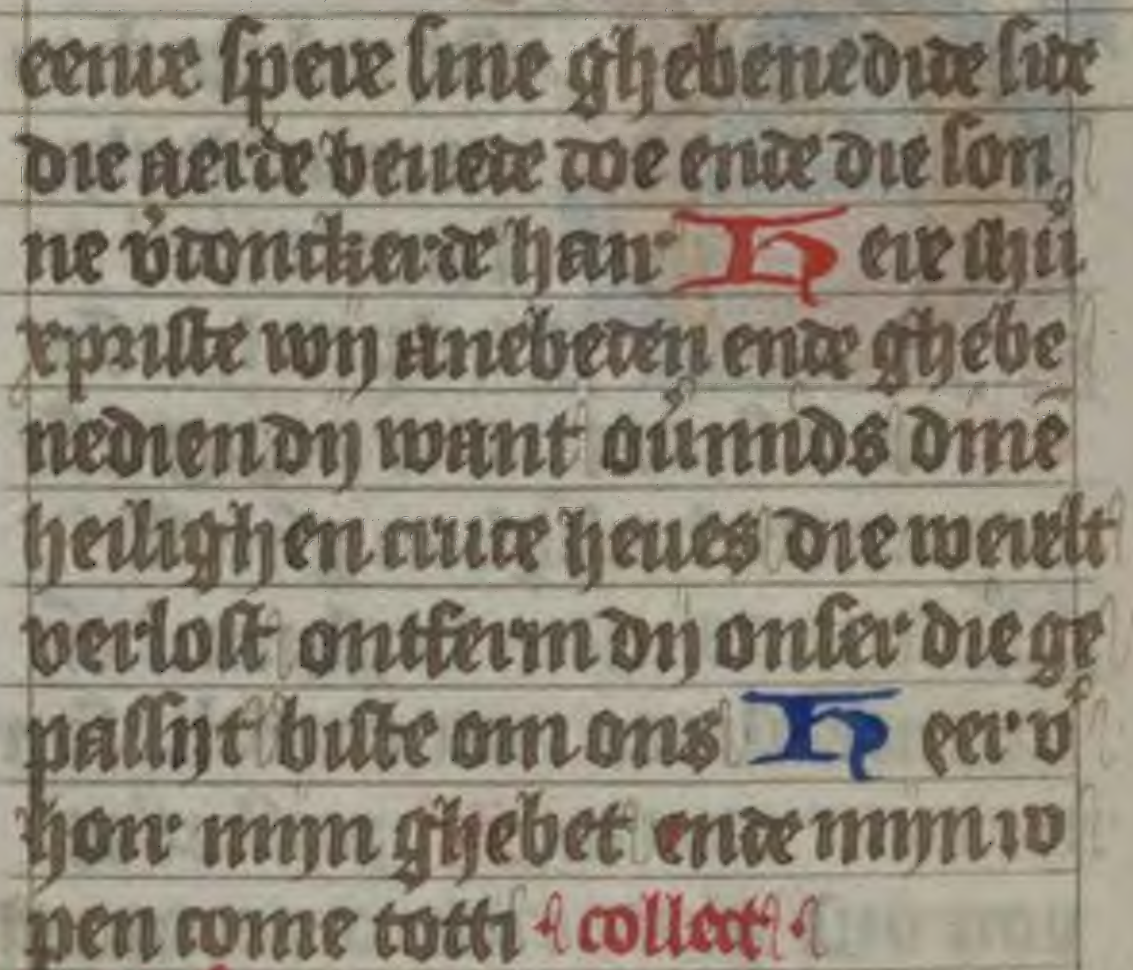 eenre spere sine ghebenedide side
die aerde beuede doe ende die son
ne v̓donckerde haer Here ihū
xpriste wij anebeden ende ghebe
nedien dij want ouermids dinē
heilighen cruce heues die werelt
verlost ontferm dij onser die ge
passijt biste om ons Heer v̓
hoer mijn ghebet ende mijn ro
pen come totti collect